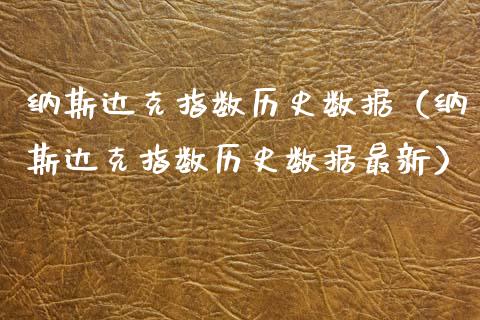 纳斯达克指数历史数据（纳
斯达克指数历史数据最新）